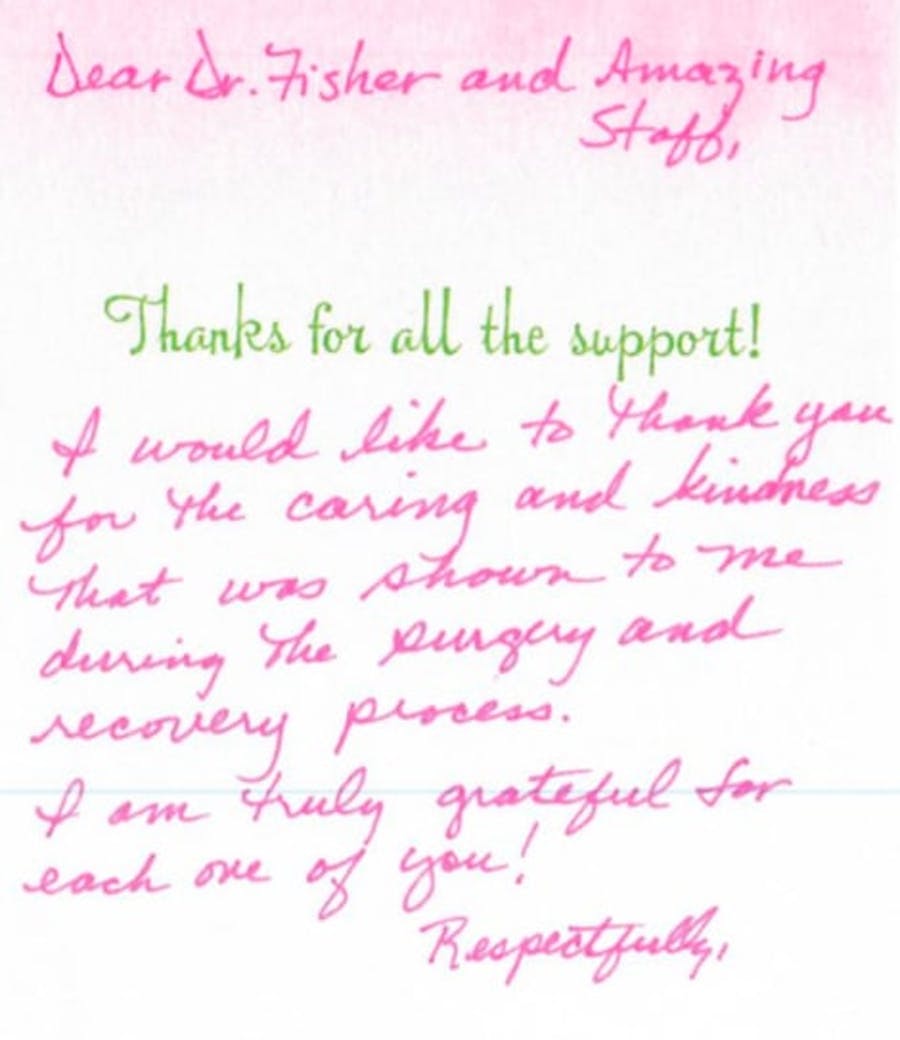 Dear Dr. Fisher and Amazing
Staff,
Thanks for all the support!
I would like to thank you
for the caring and kindness
that was shown to me
during the surgery and
recovery process.
I am truly grateful for
each one of you!
Respectfully,